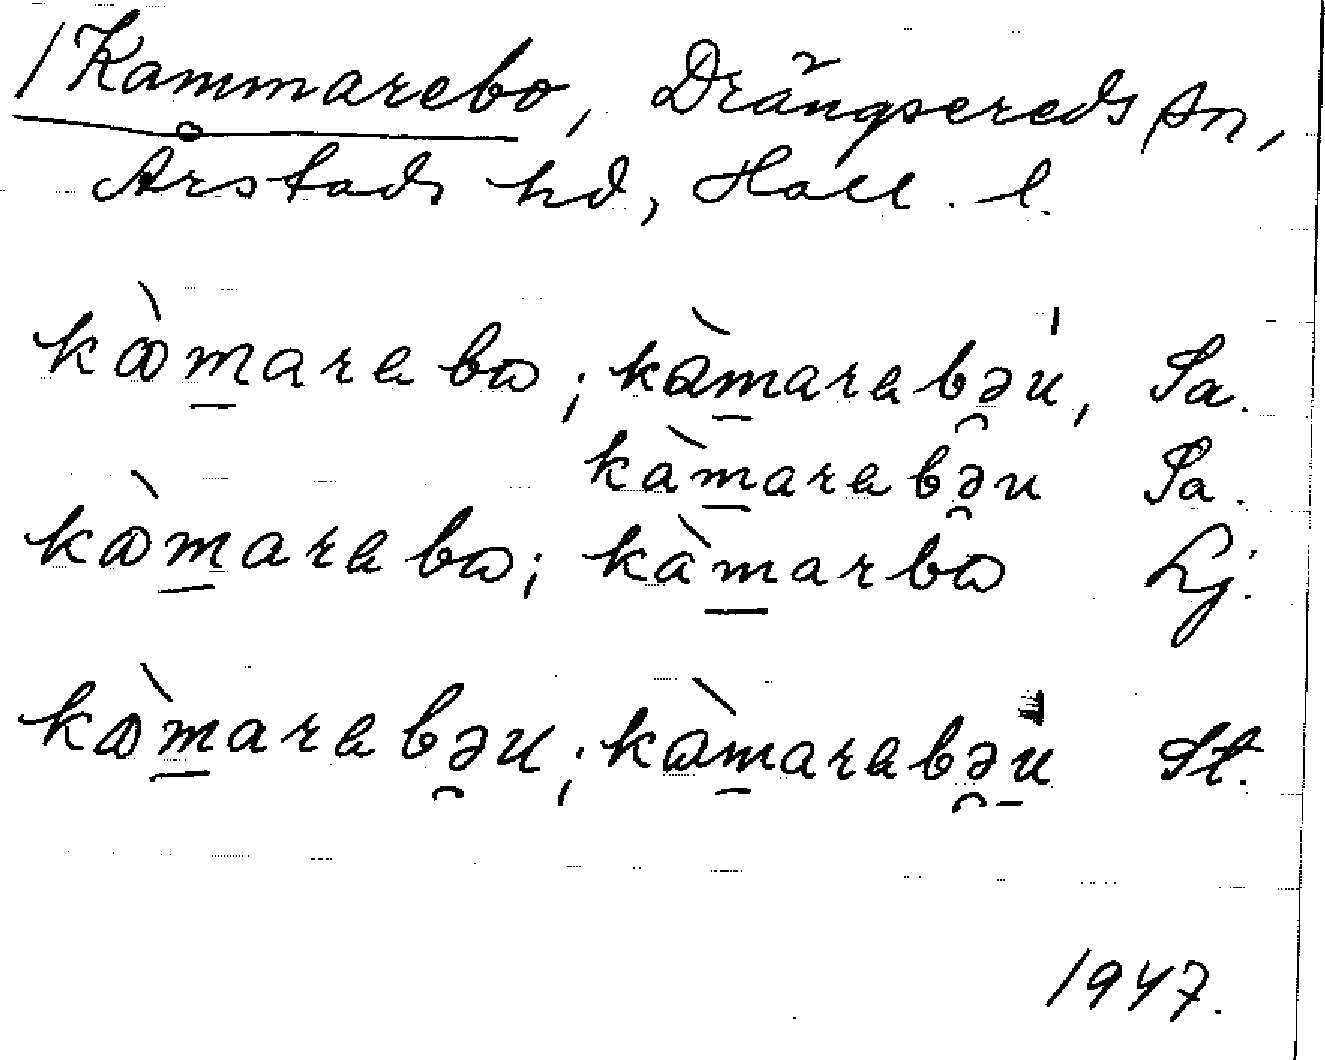 /Kammarebo, Drängsereds sn,
Årstads hd, Hall. l.
kàmarebɷ; kàmarabəu, Sa.
kàmarabəu Sa.
kàmarabɷ; kàmarbɷ Lj.
kàmarabəu; kàmarabəu St.
1947.